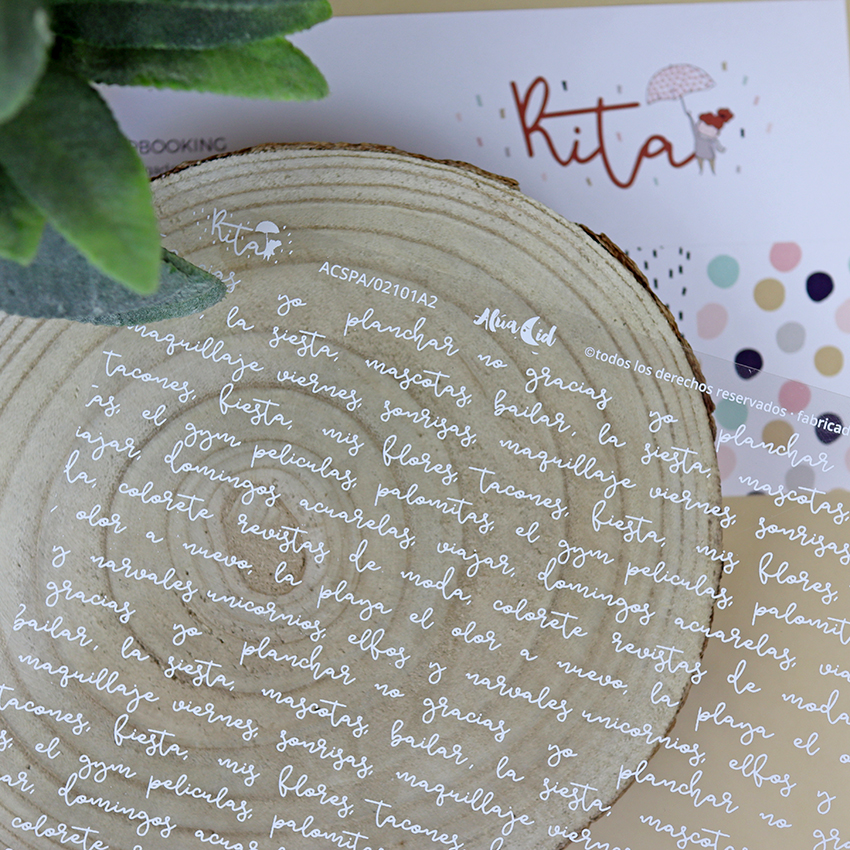 Rita
RBOOKING
Rita
ACSPA/02101A2
Alúa Cid
©todos los derechos reservados · fabricad
s yo planchar no gracias yo planchar
, la siesta, mascotas, bailar, la siesta, mascotas,
maquillaje viernes, sonrisas, maquillaje viernes, sonrisas
tacones, fiesta, mis flores, tacones, fiesta, mis flores,
as, el gym peliculas, palomitas, el gym peliculas, palomit
iajar, domingos acuarelas, viajar, domingos acuarelas, via
la, colorete revistas de moda, colorete revistas de moda
, olor a nuevo, la playa el olor a nuevo, la playa el o
y narvales unicornios, elfos y narvales unicornios, elfos y
gracias yo planchar no gracias yo planchar no g
bailar, la siesta, mascotas, bailar, la siesta, mascotas
maquillaje viernes, sonrisas, maquillaje viernes
tacones, fiesta, mis flores, tacones
s, el gym peliculas, palomitas
ar, domingos acuar
colorete